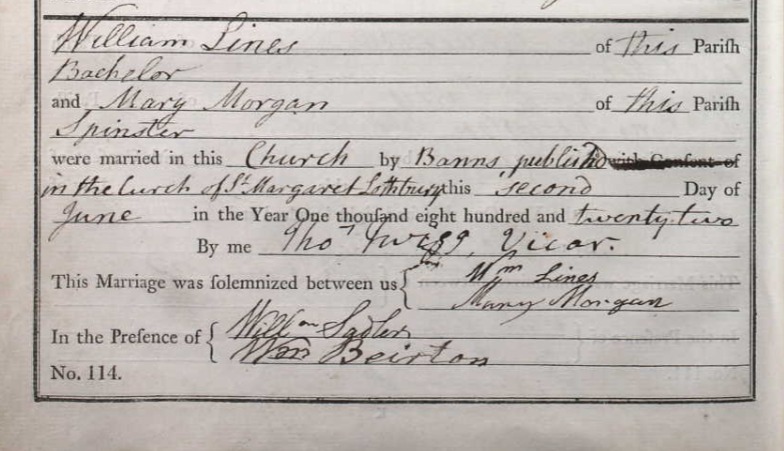 William Lines of this Parish
Bachelor
and Mary Morgan of this Parish
Spinster
were married in this Church by Banns publishd with Consent of
in the Curch of St. Margaret Lothbury this second Day of
June in the Year One thousand eight hundred and twenty two
By me Thos Twigg, Vicar.
This Marriage was solemnized between us { Wm Lines
Mary Morgan
In the Presence of { Willam Sadler
Wm Beirton
No. 114.